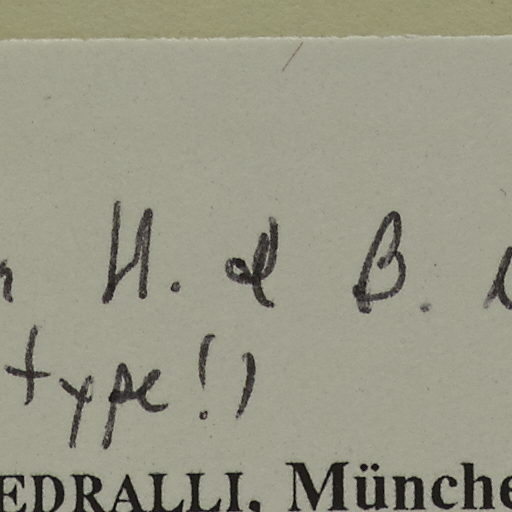 H. & B.
type!)
EDRALLI, Münche